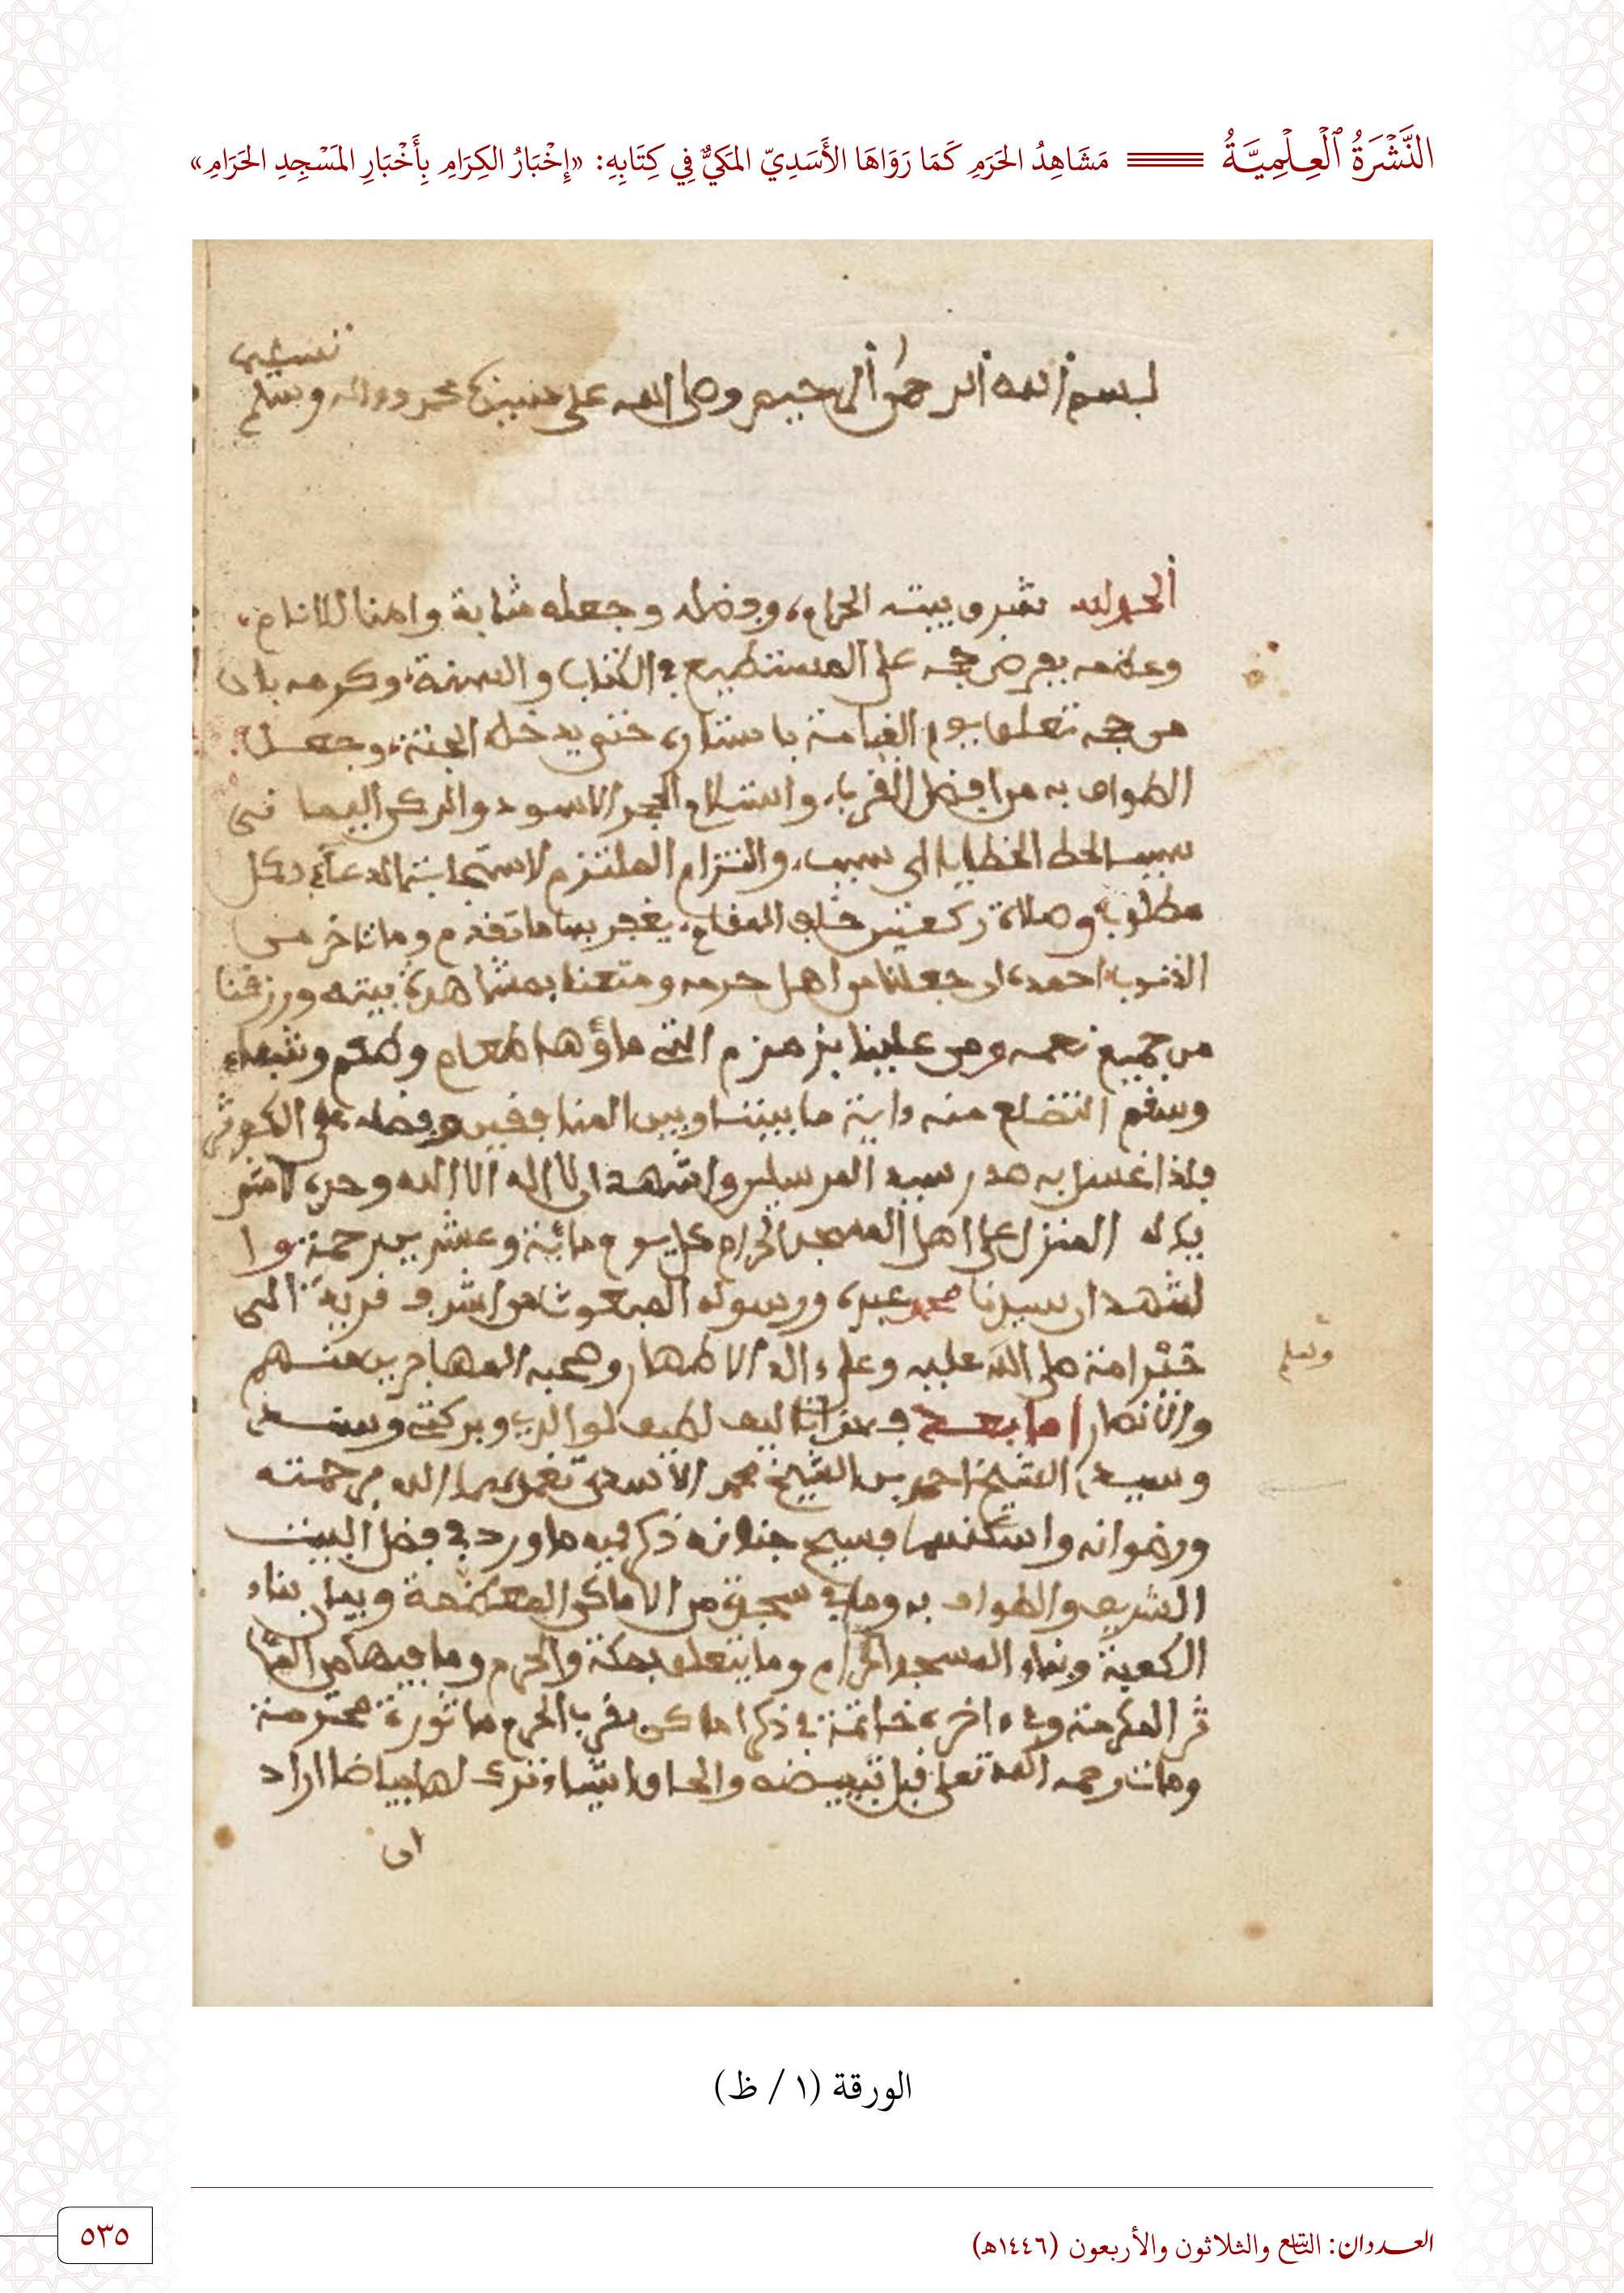 النَّشْرَةُ ٱلْعِلْمِيَّةُ مَشَاهِدُ الحَرَمِ كَمَا رَوَاهَا الأَسَدِيّ المَكيُّ فِي كِتَابِهِ: «إِخْبَارُ الكِرَامِ بِأَخْبَارِ المَسْجِدِ الحَرَامِ»
بسم الله الرحمن الرحيم وصلى الله على محمد وءاله وسلم
الحمد لله شرف بيته الحرام، وفضله وجعله مثابة وامنا للانام،
وعظمه بفرض حجه على المستطيع في الكتاب والسنة، وكرمه بان
من حجه تعلق يوم القيامة باستاره حتى يدخل الجنة، وجعل
الطواف به من افضل القرب، واستلام الحجر الاسود والركن اليما نى
سبب لحط الخطايا اى سبب، والتزام الملتزم لاستجابة الدعاء بكل
مطلوب وصلاة ركعتين خلف المقام، يغفر بها ما تقدم وما تاخر من
الذنوب احمده ان جعلنا من اهل حرمه ومتعنا بمشاهدة بيته ورزقنا
من جميع نعمه ومن علينا بزمزم التى ماؤها طعام وطعم وشفاء
وسقم التضلع منه ءاية ما بيننا وبين المنافقين وفضله على الكوثر
فلذا غسل به صدر سيد المرسلين واشهد ان لا اله الا الله وحده لا شر
يك له المنزل على اهل المسجد الحرام كل يوم مائة وعشرين رحمة وا
شهد ان سيدنا محمد عبده ورسوله المبعوث من اشرف قرية الى
خير امة صلى الله عليه وعلى ءاله الاطهار وصحبه المهاجرين منهم
وسلم
والانصار اما بعد فهذا تاليف لطيف لموالدى وبركتى وسندى
وسيدى الشيخ احمد بن الشيخ محمد الأسدى تغمدهما الله برحمته
ورضوانه واسكنهما فسيح جنانه ذكر فيه ما ورد في فضل البيت
الشريف والطواف به وما في مسجده من الاماكن المعظمة وبيان بناء
الكعبة وبناء المسجد الحرام وما يتعلق بمكة والحرم وما فيها من المئا
ثر المكرمة وفي ءاخره خاتمة في ذكر اماكن بقرب الحرم ماثورة محترمة
ومات رحمه الله تعلى قبل تبييضه والحاق اشياء ترك لها بياضا اراد
ان
الورقة (١ / ظ)
العــددان: التاسع والثلاثون والأربعون (١٤٤٦هـ)
٥٣٥